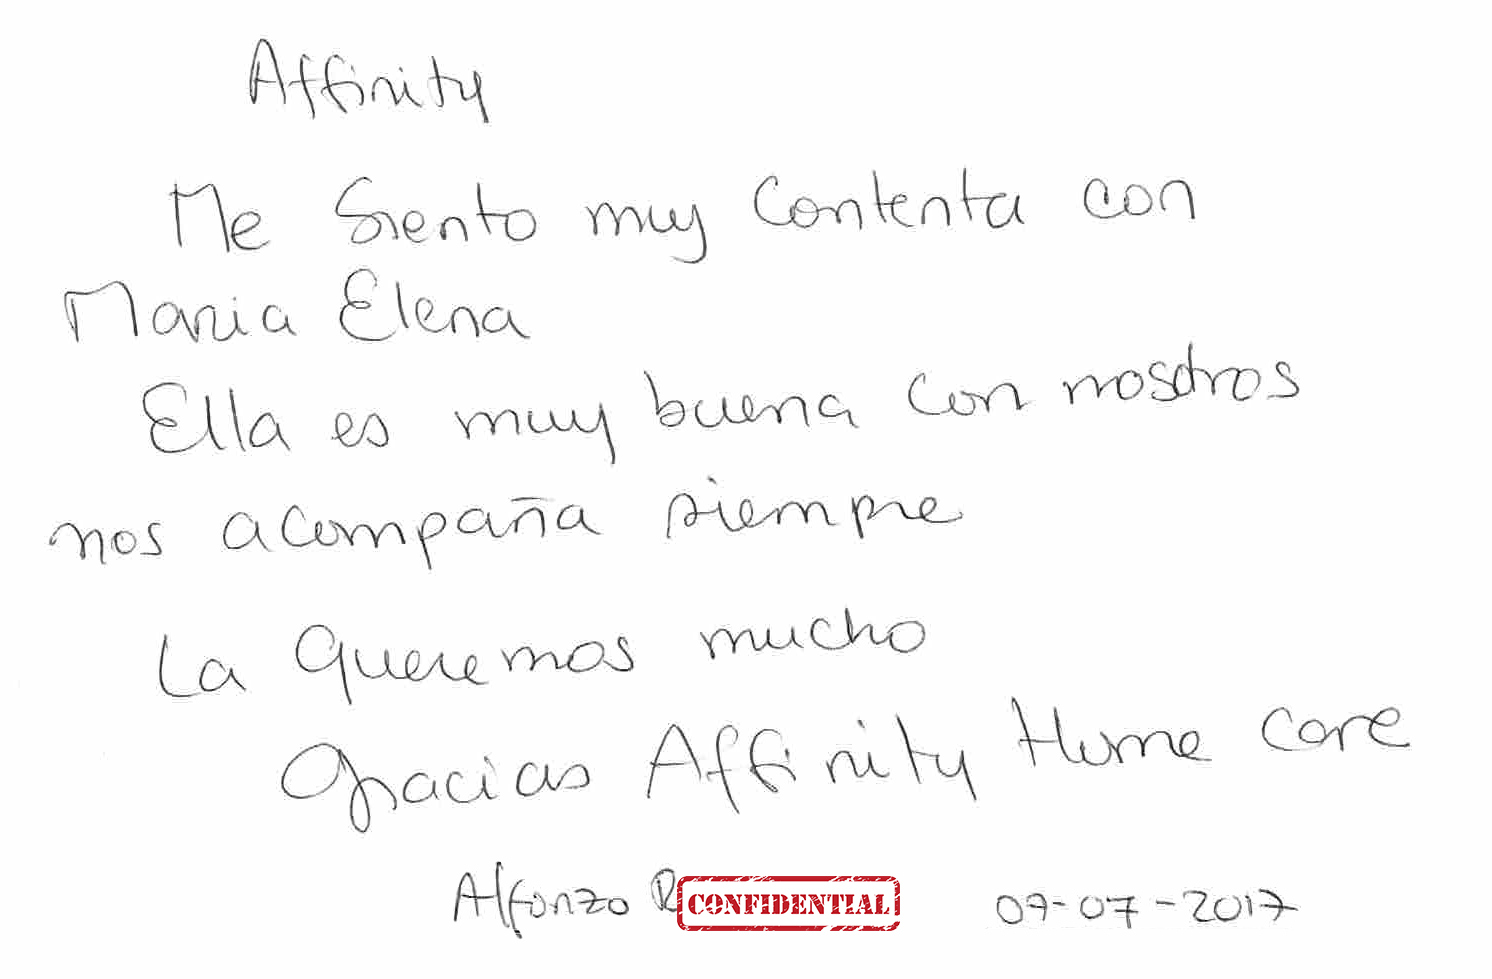 Affinity
Me Siento muy Contenta con
Maria Elena
Ella es muy buena con nosotros
nos acompaña siempre
La queremos mucho
Gracias Affinity Home Care
Alfonzo R CONFIDENTIAL 09-07-2017